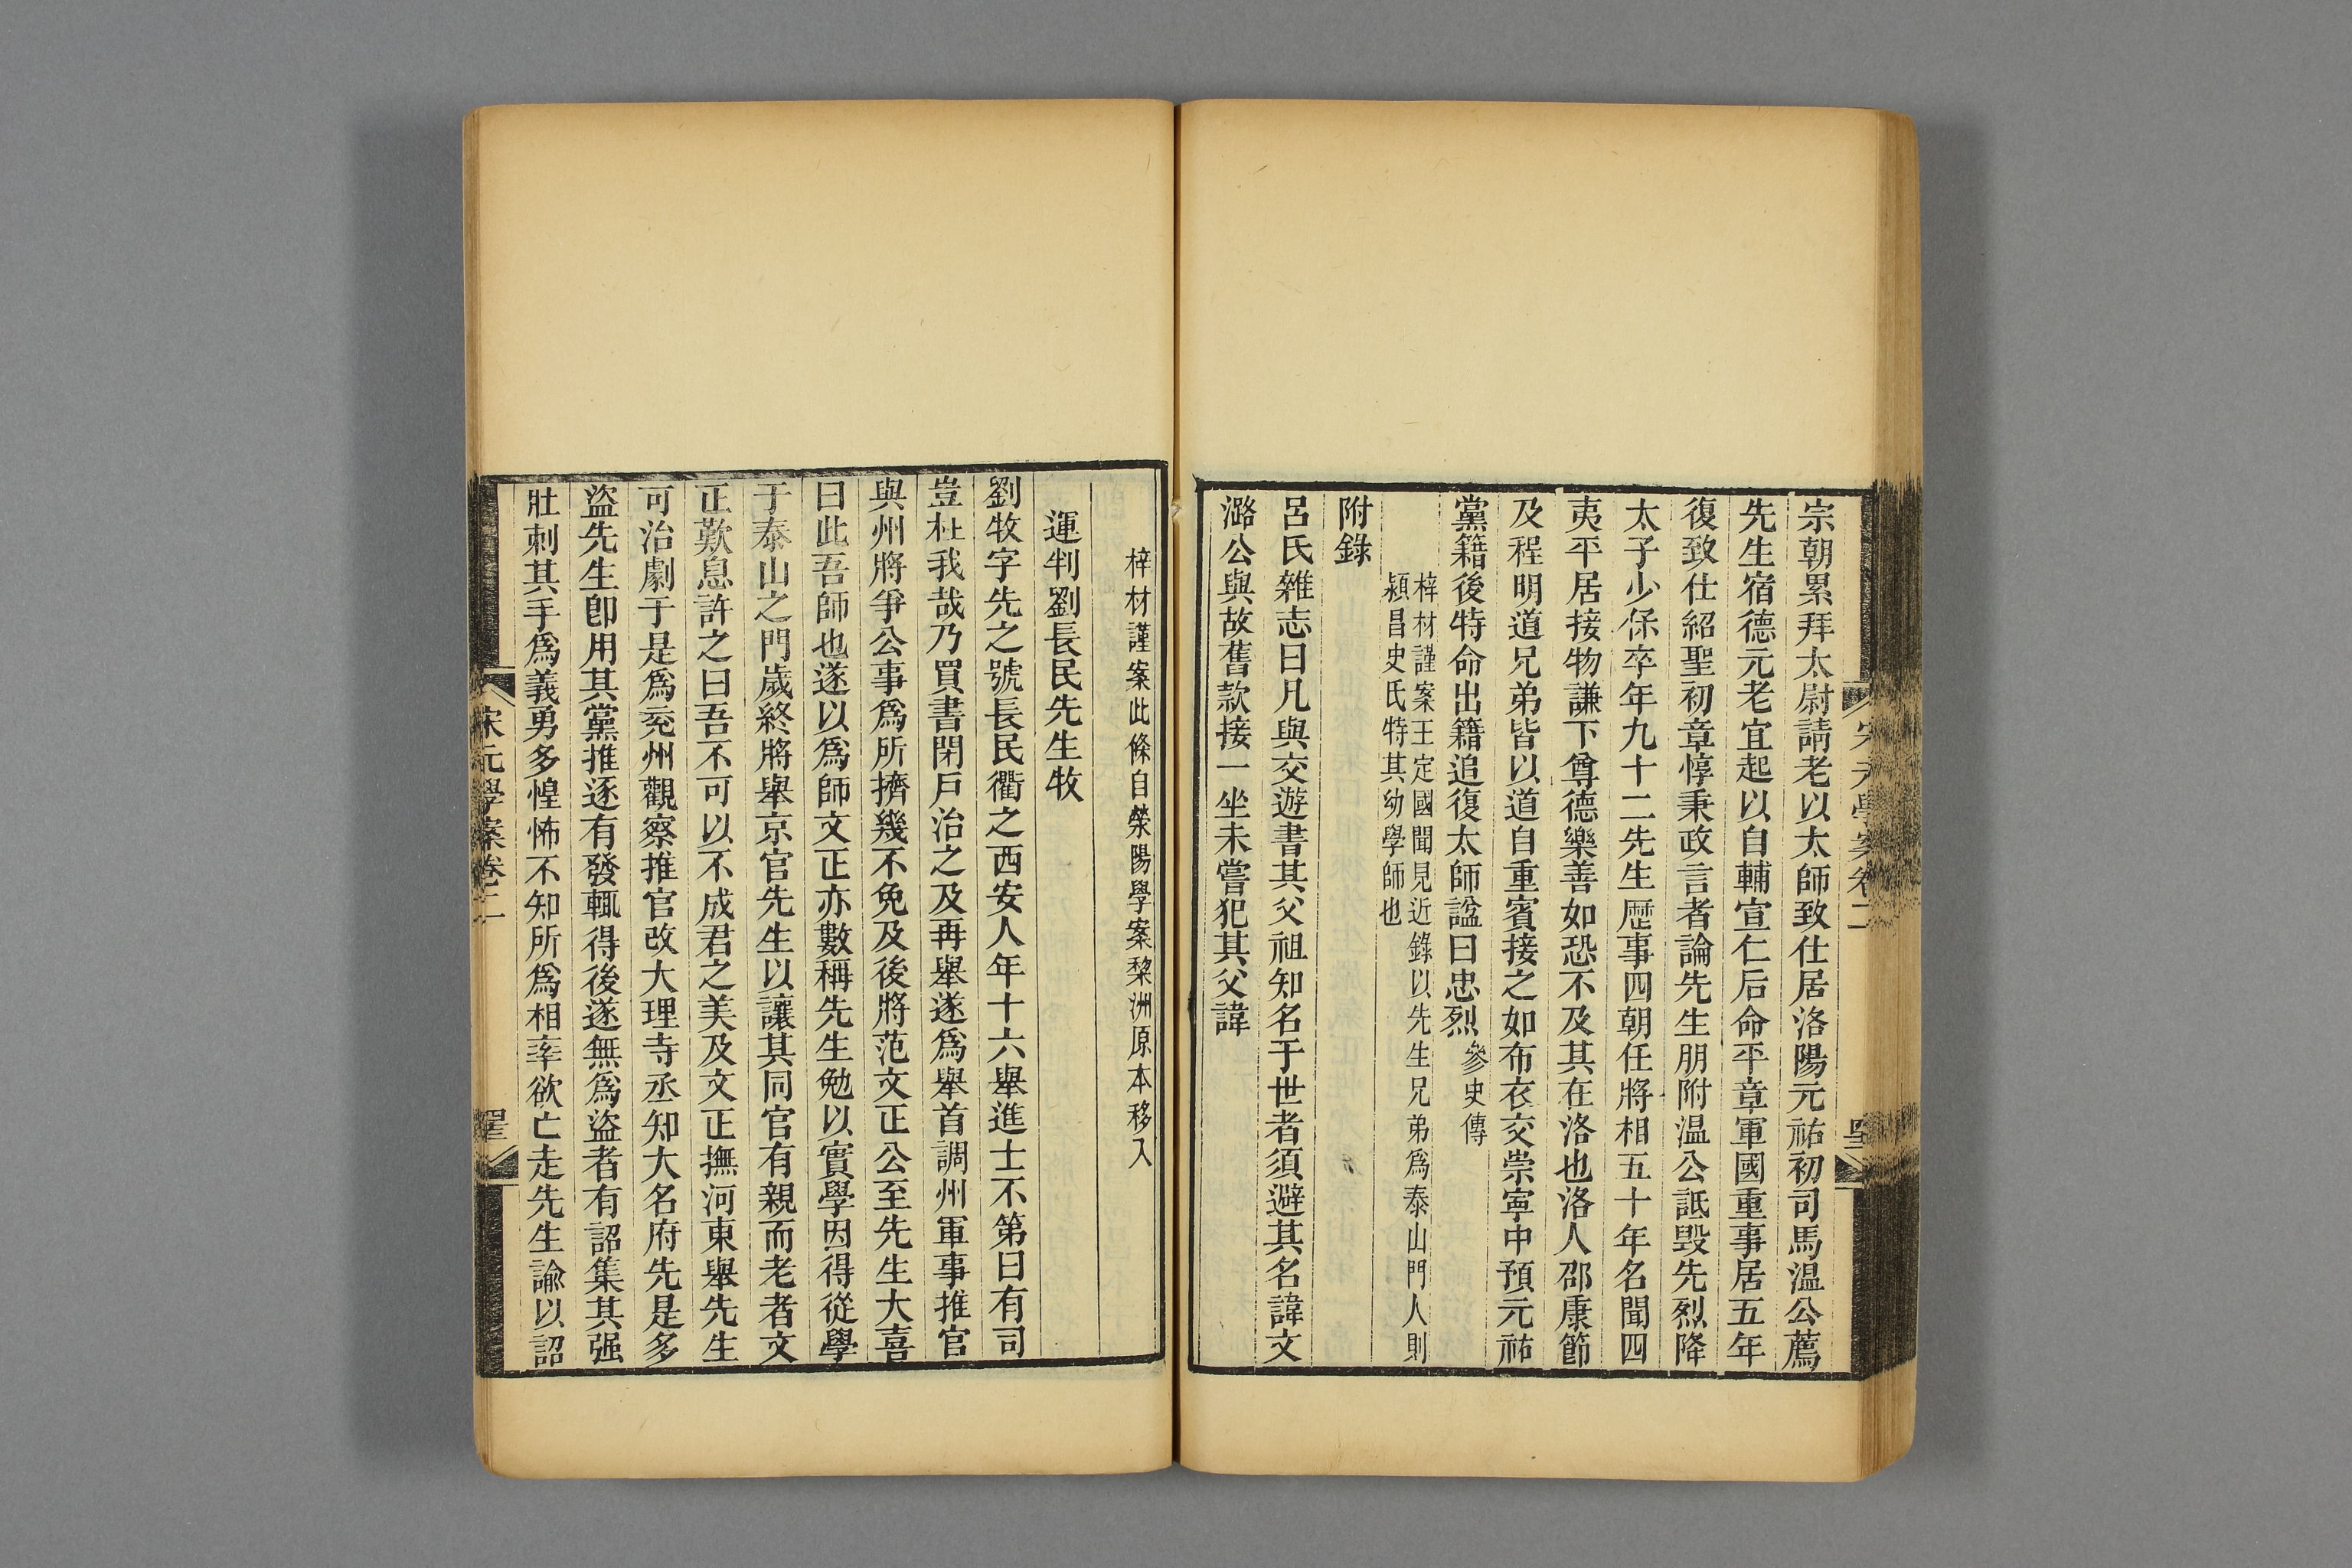 宗朝累拜太尉請老以太師致仕居洛陽元祐初司馬溫公薦
先生宿德元老宜起以自輔宣仁后命平章軍國重事居五年
復致仕紹聖初章惇秉政言者論先生朋附溫公詆毀先烈降
太子少保卒年九十二先生歷事四朝任將相五十年名聞四
夷平居接物謙下尊德樂善如恐不及其在洛也洛人邵康節
及程明道兄弟皆以道自重賓接之如布衣交崇寧中預元祐
黨籍後特命出籍追復太師諡曰忠烈參史傳
梓材謹案王定國聞見近錄以先生兄弟爲泰山門人則
潁昌史氏特其幼學師也
附錄
呂氏雜志曰凡與交遊書其父祖知名于世者須避其名諱文
潞公與故舊款接一坐未嘗犯其父諱
梓材謹案此條自滎陽學案棃洲原本移入
運判劉長民先生牧
劉牧字先之號長民衢之西安人年十六舉進士不第曰有司
豈杜我哉乃買書閉戶治之及再舉遂爲舉首調州軍事推官
與州將爭公事爲所擠幾不免及後將范文正公至先生大喜
曰此吾師也遂以爲師文正亦數稱先生勉以實學因得從學
于泰山之門歲終將舉京官先生以讓其同官有親而老者文
正歎息許之曰吾不可以不成君之美及文正撫河東舉先生
可治劇于是爲兗州觀察推官改大理寺丞知大名府先是多
盜先生卽用其黨推逐有發輒得後遂無爲盜者有詔集其强
壯刺其手爲義勇多惶怖不知所爲相率欲亡走先生諭以詔
宋元學案卷二